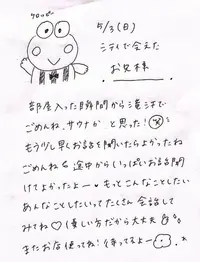 ケロッピ
5/3(日)
ニオイで会えた
お兄様
部屋入った瞬間から湯気で
ごめんね、サウナか と思った!
もう少し早くお話を聞いたらよかったね
ごめんね 途中からいっぱいお話を聞
けてよかったよー もっとこんなことしたい
あんなことしたいってたくさん会話して
みてね♡ 優しい方だから大丈夫
またお店使ってね! 待ってるよー